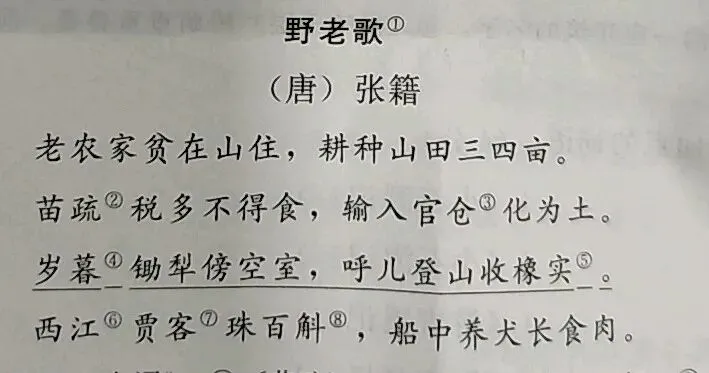 野老歌①
（唐）张籍
老农家贫在山住，耕种山田三四亩。
苗疏②税多不得食，输入官仓③化为土。
岁暮④锄犁傍空室，呼儿登山收橡实⑤。
西江⑥贾客⑦珠百斛⑧，船中养犬长食肉。